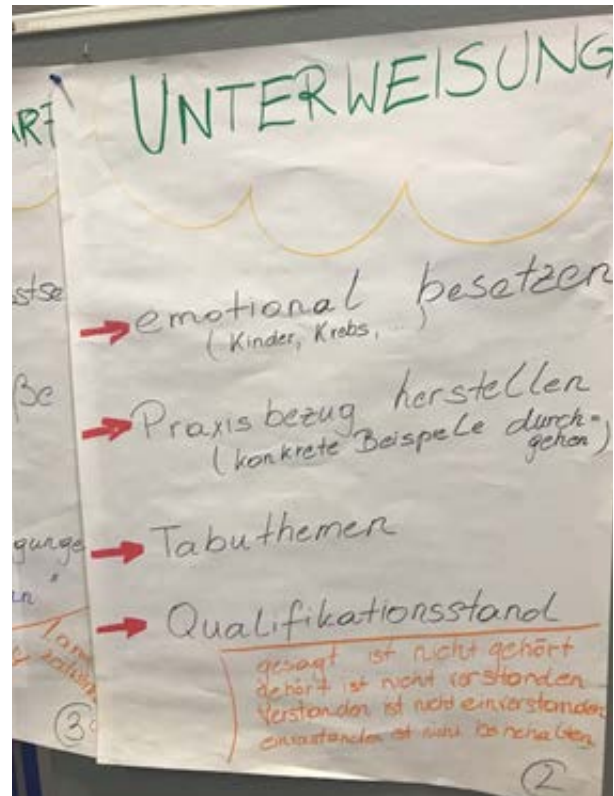 UNTERWEISUNG
emotional besetzen
(Kinder, Krebs, ...)
Praxisbezug herstellen
(konkrete Beispele durch-
gehen)
Tabuthemen
Qualifikationsstand
gesagt ist nicht gehört
gehört ist nicht verstanden
Verstanden ist nicht einverstanden
einverstanden ist nicht
2
ART
stse
ße
gunge
3